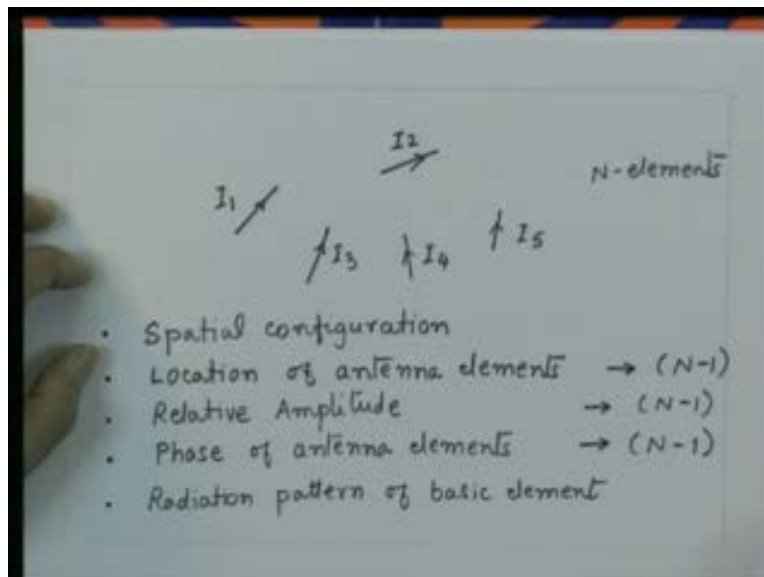 I2
N-elements
I1
I3 I4 I5
• Spatial configuration
• Location of antenna elements → (N-1)
• Relative Amplitude → (N-1)
• Phase of antenna elements → (N-1)
• Radiation pattern of basic element